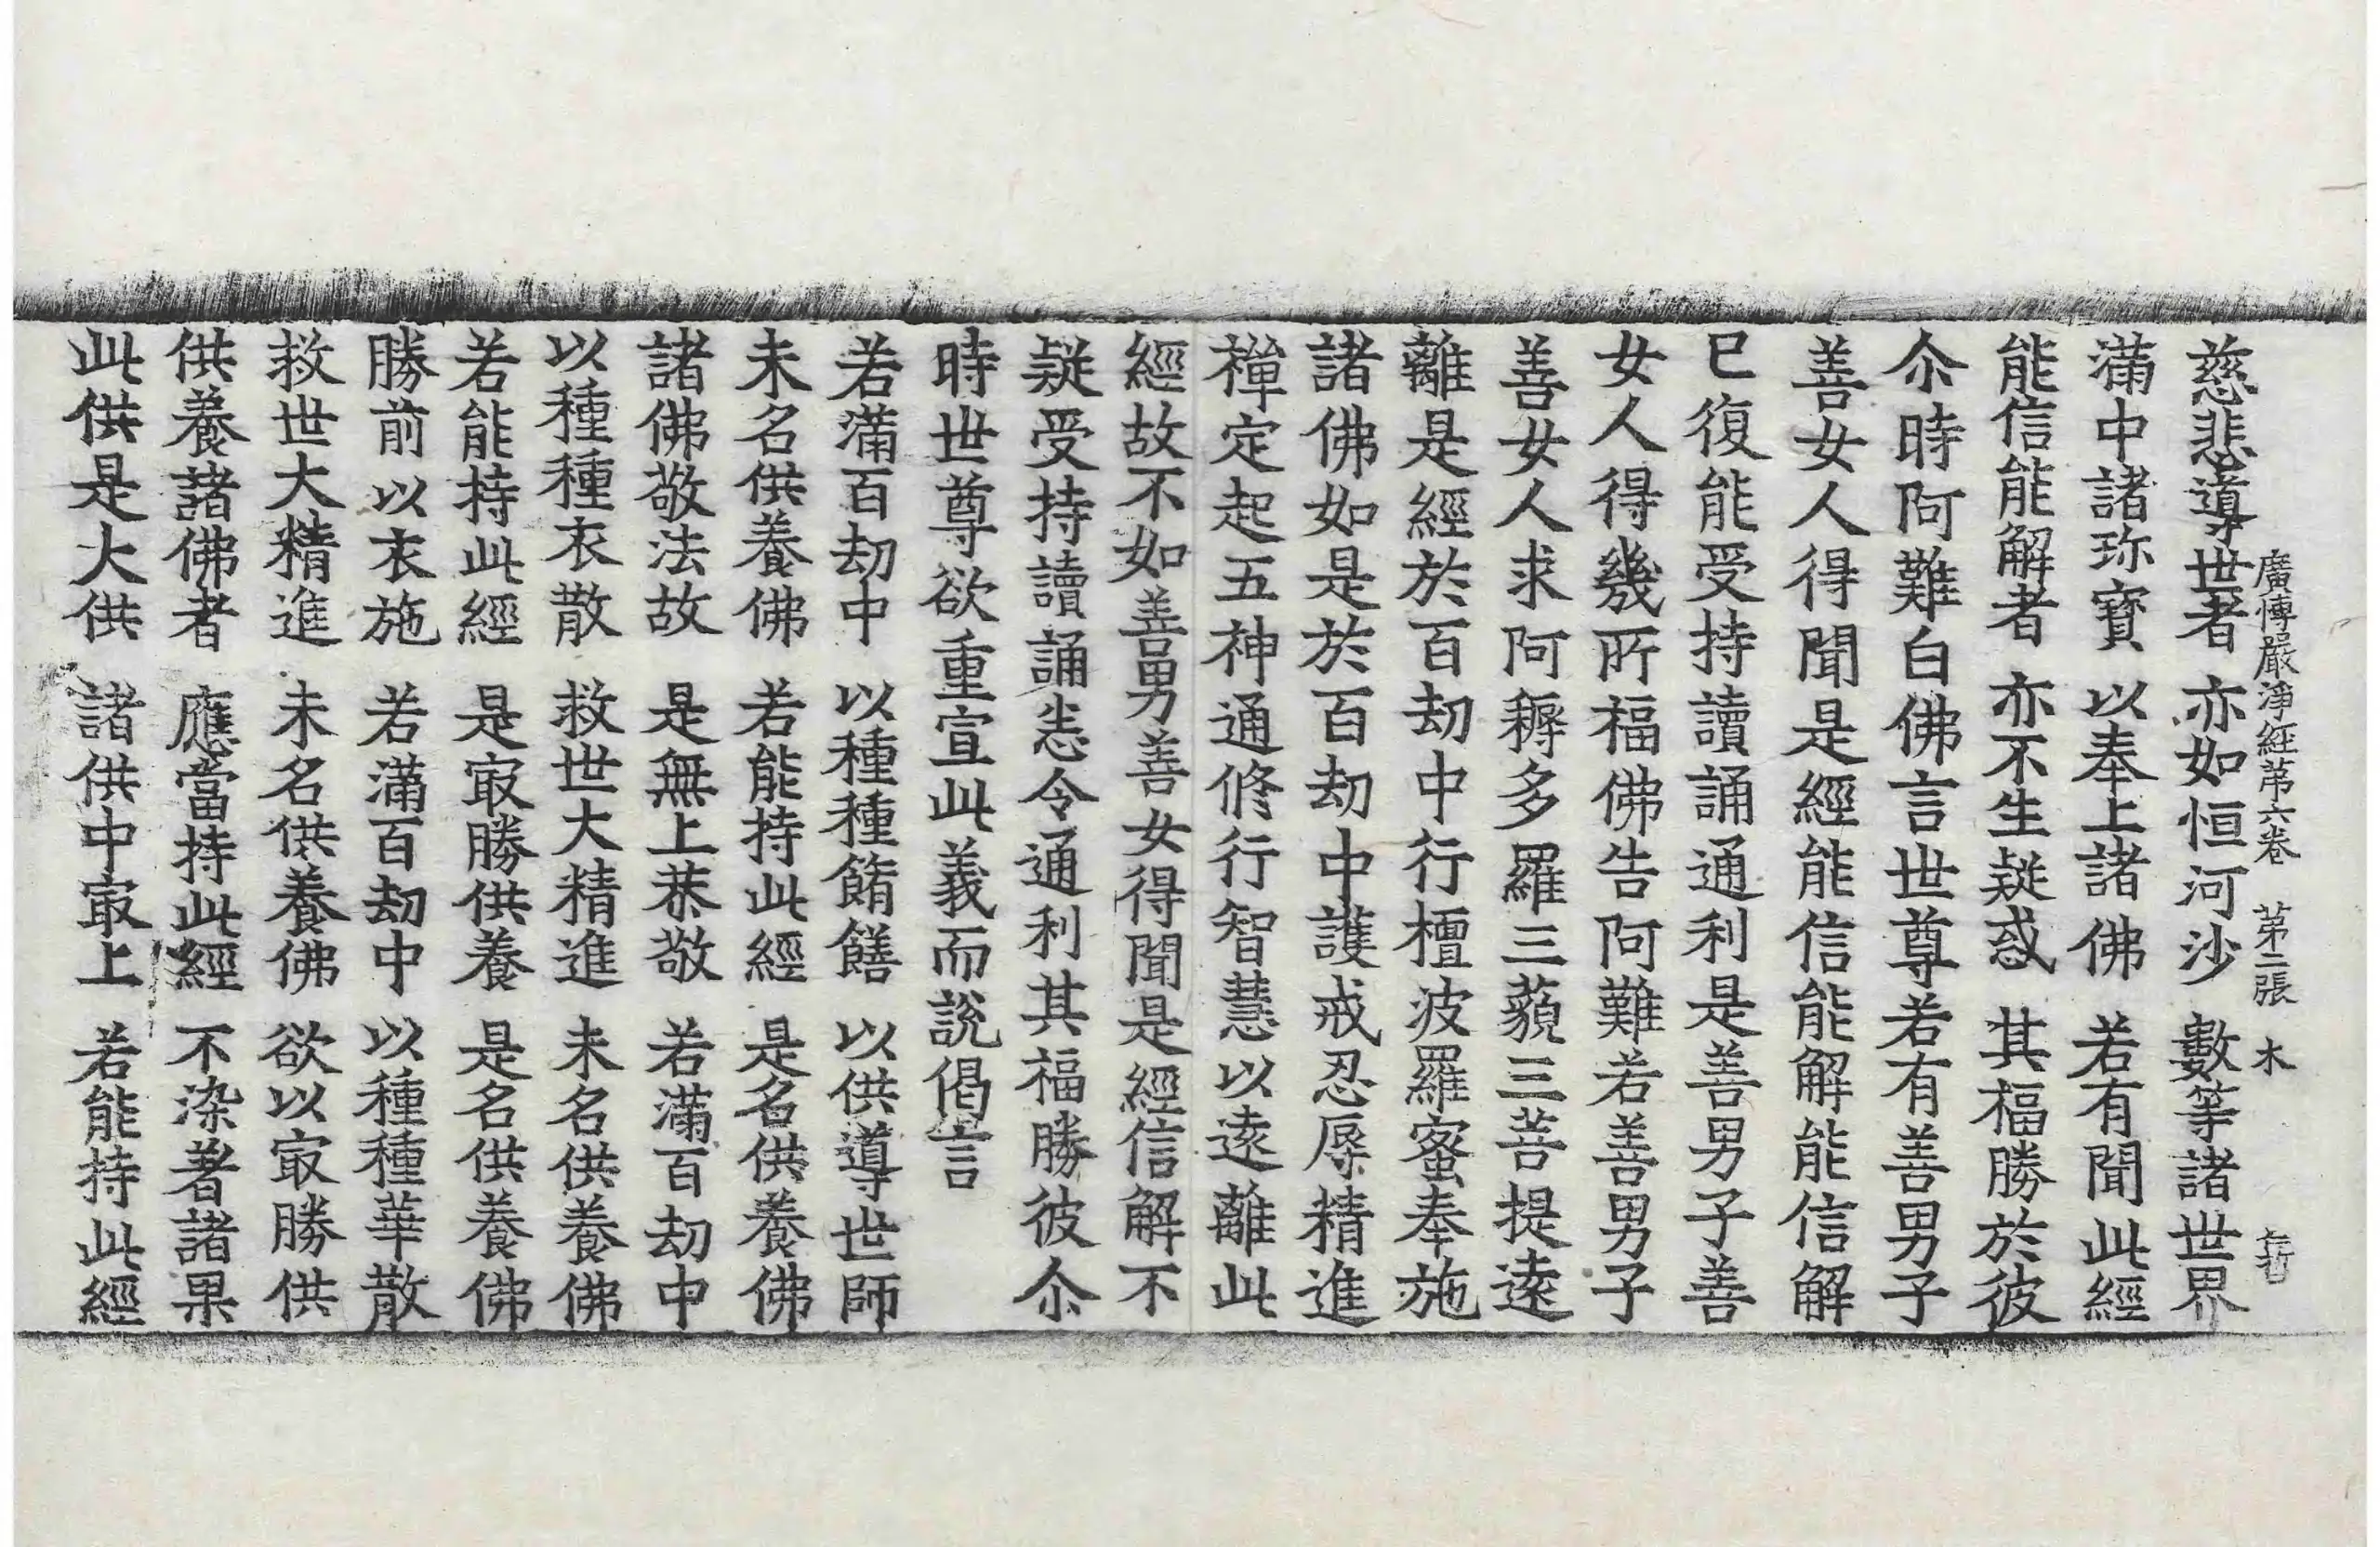 廣愽嚴淨經苐六卷 苐二張 木
慈悲導世者 亦如恒河沙 數等諸世界
滿中諸珎寶 以奉上諸佛 若有聞此經
能信能解者 亦不生疑惑 其福勝於彼
尒時阿難白佛言世尊若有善男子
善女人得聞是經能信能解能信解
已復能受持讀誦通利是善男子善
女人得幾所福佛告阿難若善男子
善女人求阿耨多羅三藐三菩提遠
離是經於百劫中行檀波羅蜜奉施
諸佛如是於百劫中護戒忍辱精進
禪定起五神通修行智慧以遠離此
經故不如善男善女得聞是經信解不
疑受持讀誦恙令通利其福勝彼尒
時世尊欲重宣此義而說偈言
若滿百劫中 以種種餚饍 以供導世師
未名供養佛 若能持此經 是名供養佛
諸佛敬法故 是無上恭敬 若滿百劫中
以種種衣散 救世大精進 未名供養佛
若能持此經 是㝡勝供養 是名供養佛
勝前以衣施 若滿百劫中 以種種華散
救世大精進 未名供養佛 欲以㝡勝供
供養諸佛者 應當持此經 不染著諸果
此供是大供 諸供中㝡上 若能持此經